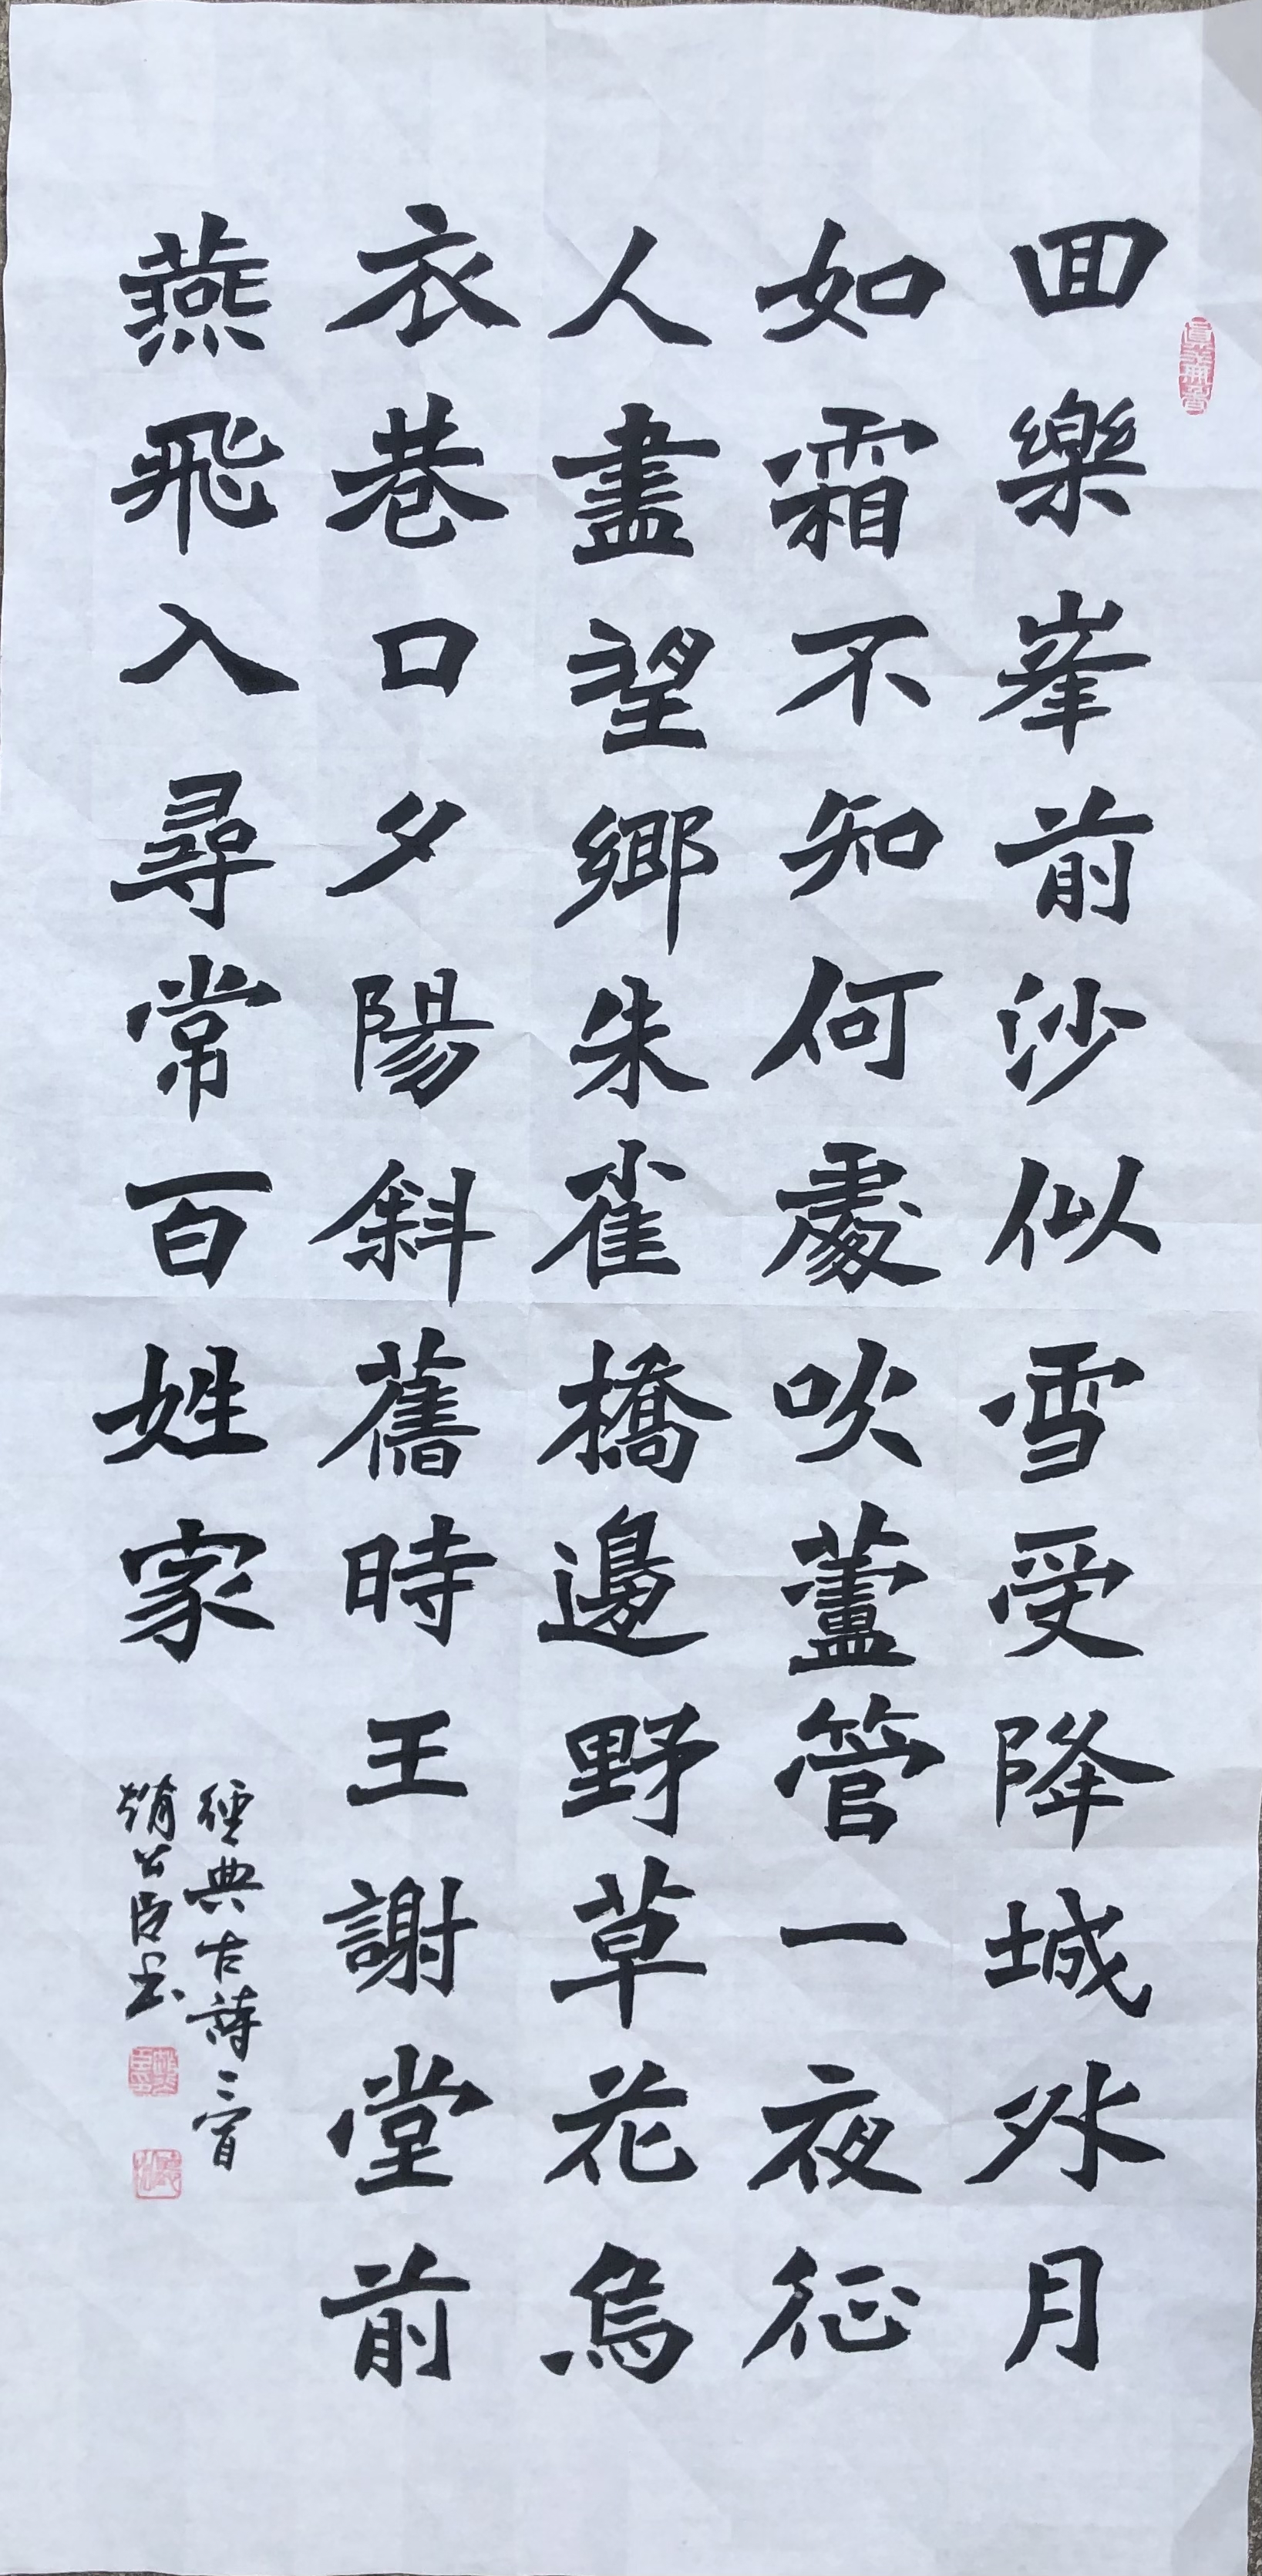 回樂峯前沙似雪受降城外月
如霜不知何處吹蘆管一夜征
人盡望鄉朱雀橋邊野草花烏
衣巷口夕陽斜舊時王謝堂前
燕飛入尋常百姓家
經典古詩二首